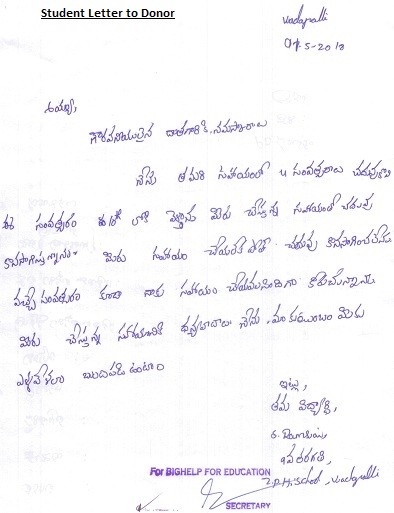 Student Letter to Donor
Vadapalli
5-2018
అయ్యా,
గౌరవనీయులైన దాతగారికి నమస్కారాలు
నేను తమరి సహాయంతో 4 సంవత్సరాలు చదువుకున్నాను
ఈ సంవత్సరం లోకి వెళ్తాను మీరు చేస్తున్న సహాయంతో చదువు
కొనసాగిస్తున్నాను. మీరు సహాయం చేయకపోతే చదువు కొనసాగించలేను
వచ్చే సంవత్సరం కూడా నాకు సహాయం చేయవలసిందిగా కోరుచున్నాను
మీరు చేస్తున్న సహాయానికి ధన్యవాదాలు నేను, మా కుటుంబం మీకు
ఎల్లవేళలా ఉంటాం
ఇట్లు,
తమ విద్యార్థి,
తరగతి
Z.P.H.School, Vadapalli
For BIGHELP FOR EDUCATION
SECRETARY